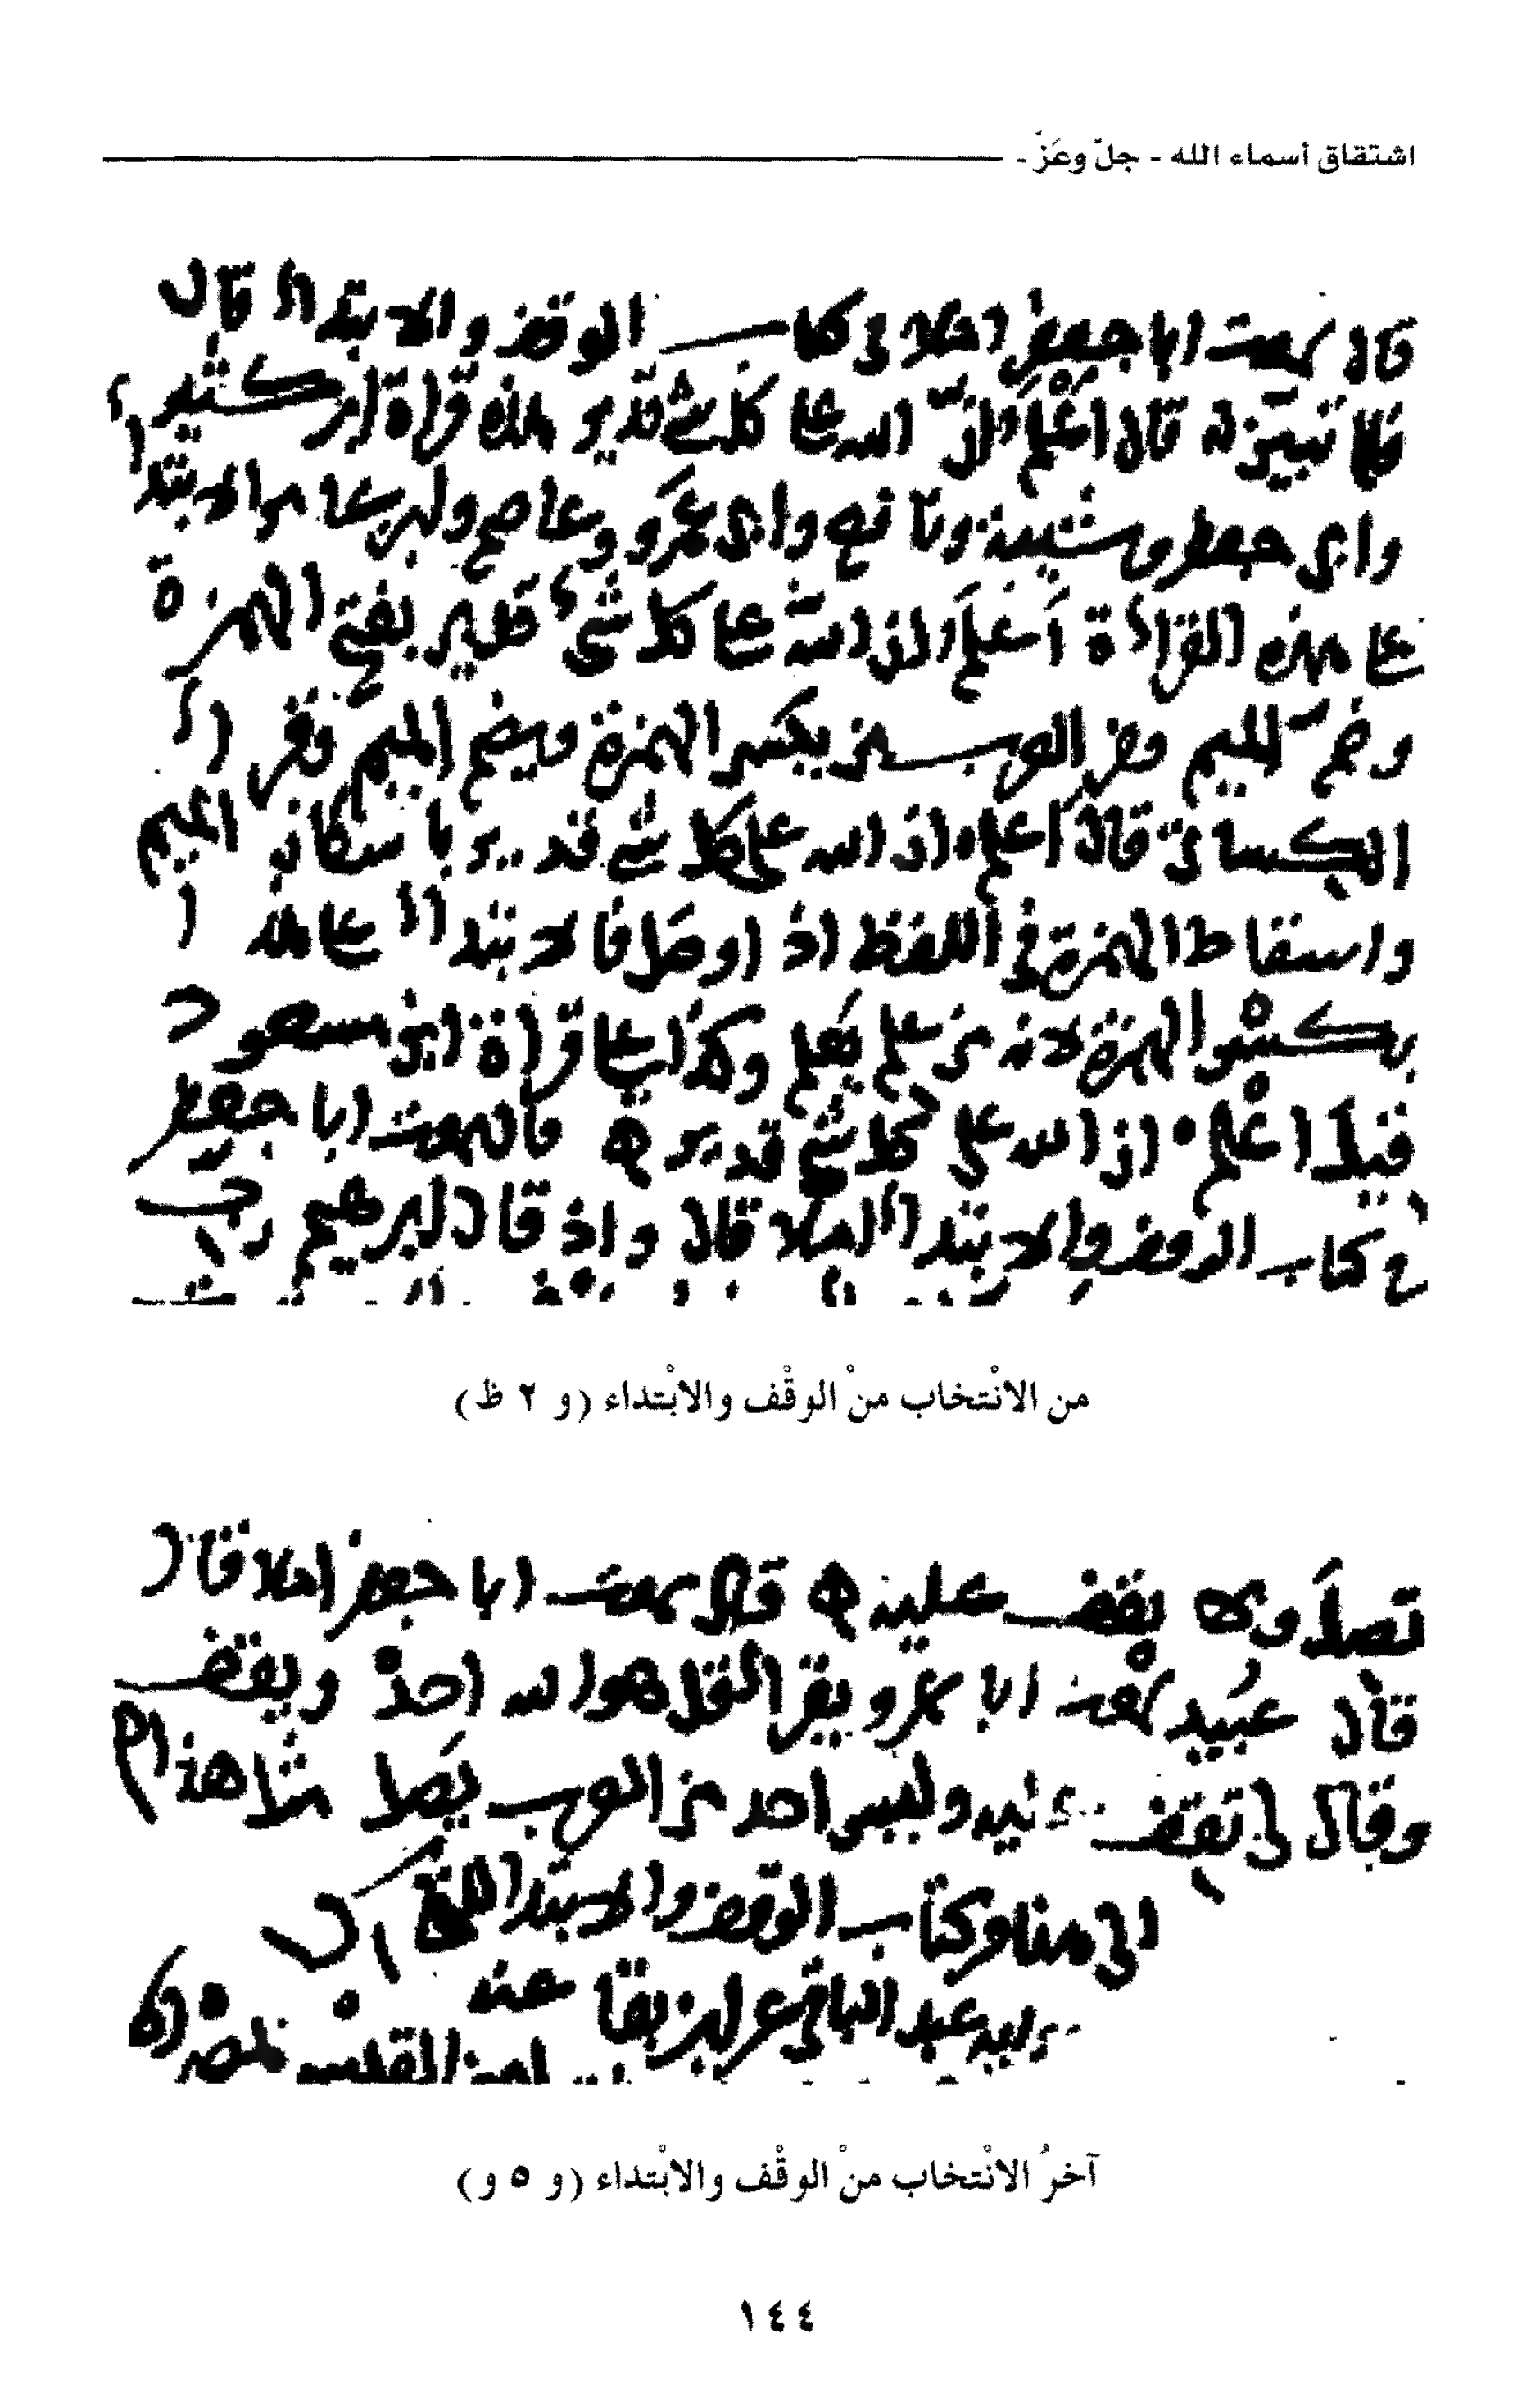 اشتقاق أسماء الله - جلّ وعَزّ -
قال سمعت ابا جعفر املا في كتاب الوقف والابتدا قال
فلما تبين له قال اعلم ان الله على كل شي قدير هذه قراة ابن كثير
وابي جعفر وشيبة ونافع وابي عمرو وعاصم وابن عامر والابتدا
على هذه القراءة أعلم ان الله على كل شيء قدير بفتح الهمزة
وضم الميم ومن العرب من يكسر الهمزة ويضم الميم وقرا
الكسائي قال اعلم ان الله على كل شي قدير باسكان الميم
واسقاط الهمزة في اللفظ اذا وصل فالابتدا على هذا
بكسر الهمزة لانه من علم يعلم وكذا على قراة ابن مسعود
قيل اعلم ان الله على كل شي قدير قال سمعت ابا جعفر
في كتاب الوقف والابتدا املا قال واذ قال ابرهيم رب
من الانْتخاب منْ الوقْف والابْتداء (و ٢ ظ)
تصل ولا يقف عليه قال سمعت ابا جعفر املا قال
قال عبيد سمعت ابا عمرو يقرا قل هو الله احد ويقف
وقال لي تقف وليس احد من العرب يصل مثل هذا
الى هنا وكتاب الوقف والابتدا
عبد الباقي عنه
آخرُ الانْتخاب منْ الوقْف والابْتداء (و ٥ و)
١٤٤